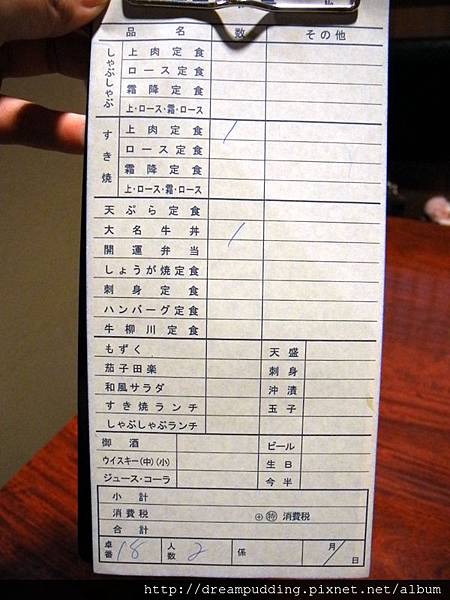 品 名 数 その他
しゃぶしゃぶ
上肉定食
ロース定食
霜降定食
上・ロース・霜・ロース
すき焼
上肉定食 /
ロース定食
霜降定食
上・ロース・霜・ロース
天ぷら定食
大名牛丼 /
開運弁当
しょうが焼定食
刺身定食
ハンバーグ定食
牛柳川定食
もずく 天盛
茄子田楽 刺身
和風サラダ 沖漬
すき焼ランチ 玉子
しゃぶしゃぶランチ
御酒 ビール
ウイスキー(中)(小) 生B
ジュース・コーラ 今半
小計
消費税 ⊕㊕ 消費税
合計
卓番 18 人数 2 係 月/日
http://dreampudding.pixnet.net/album